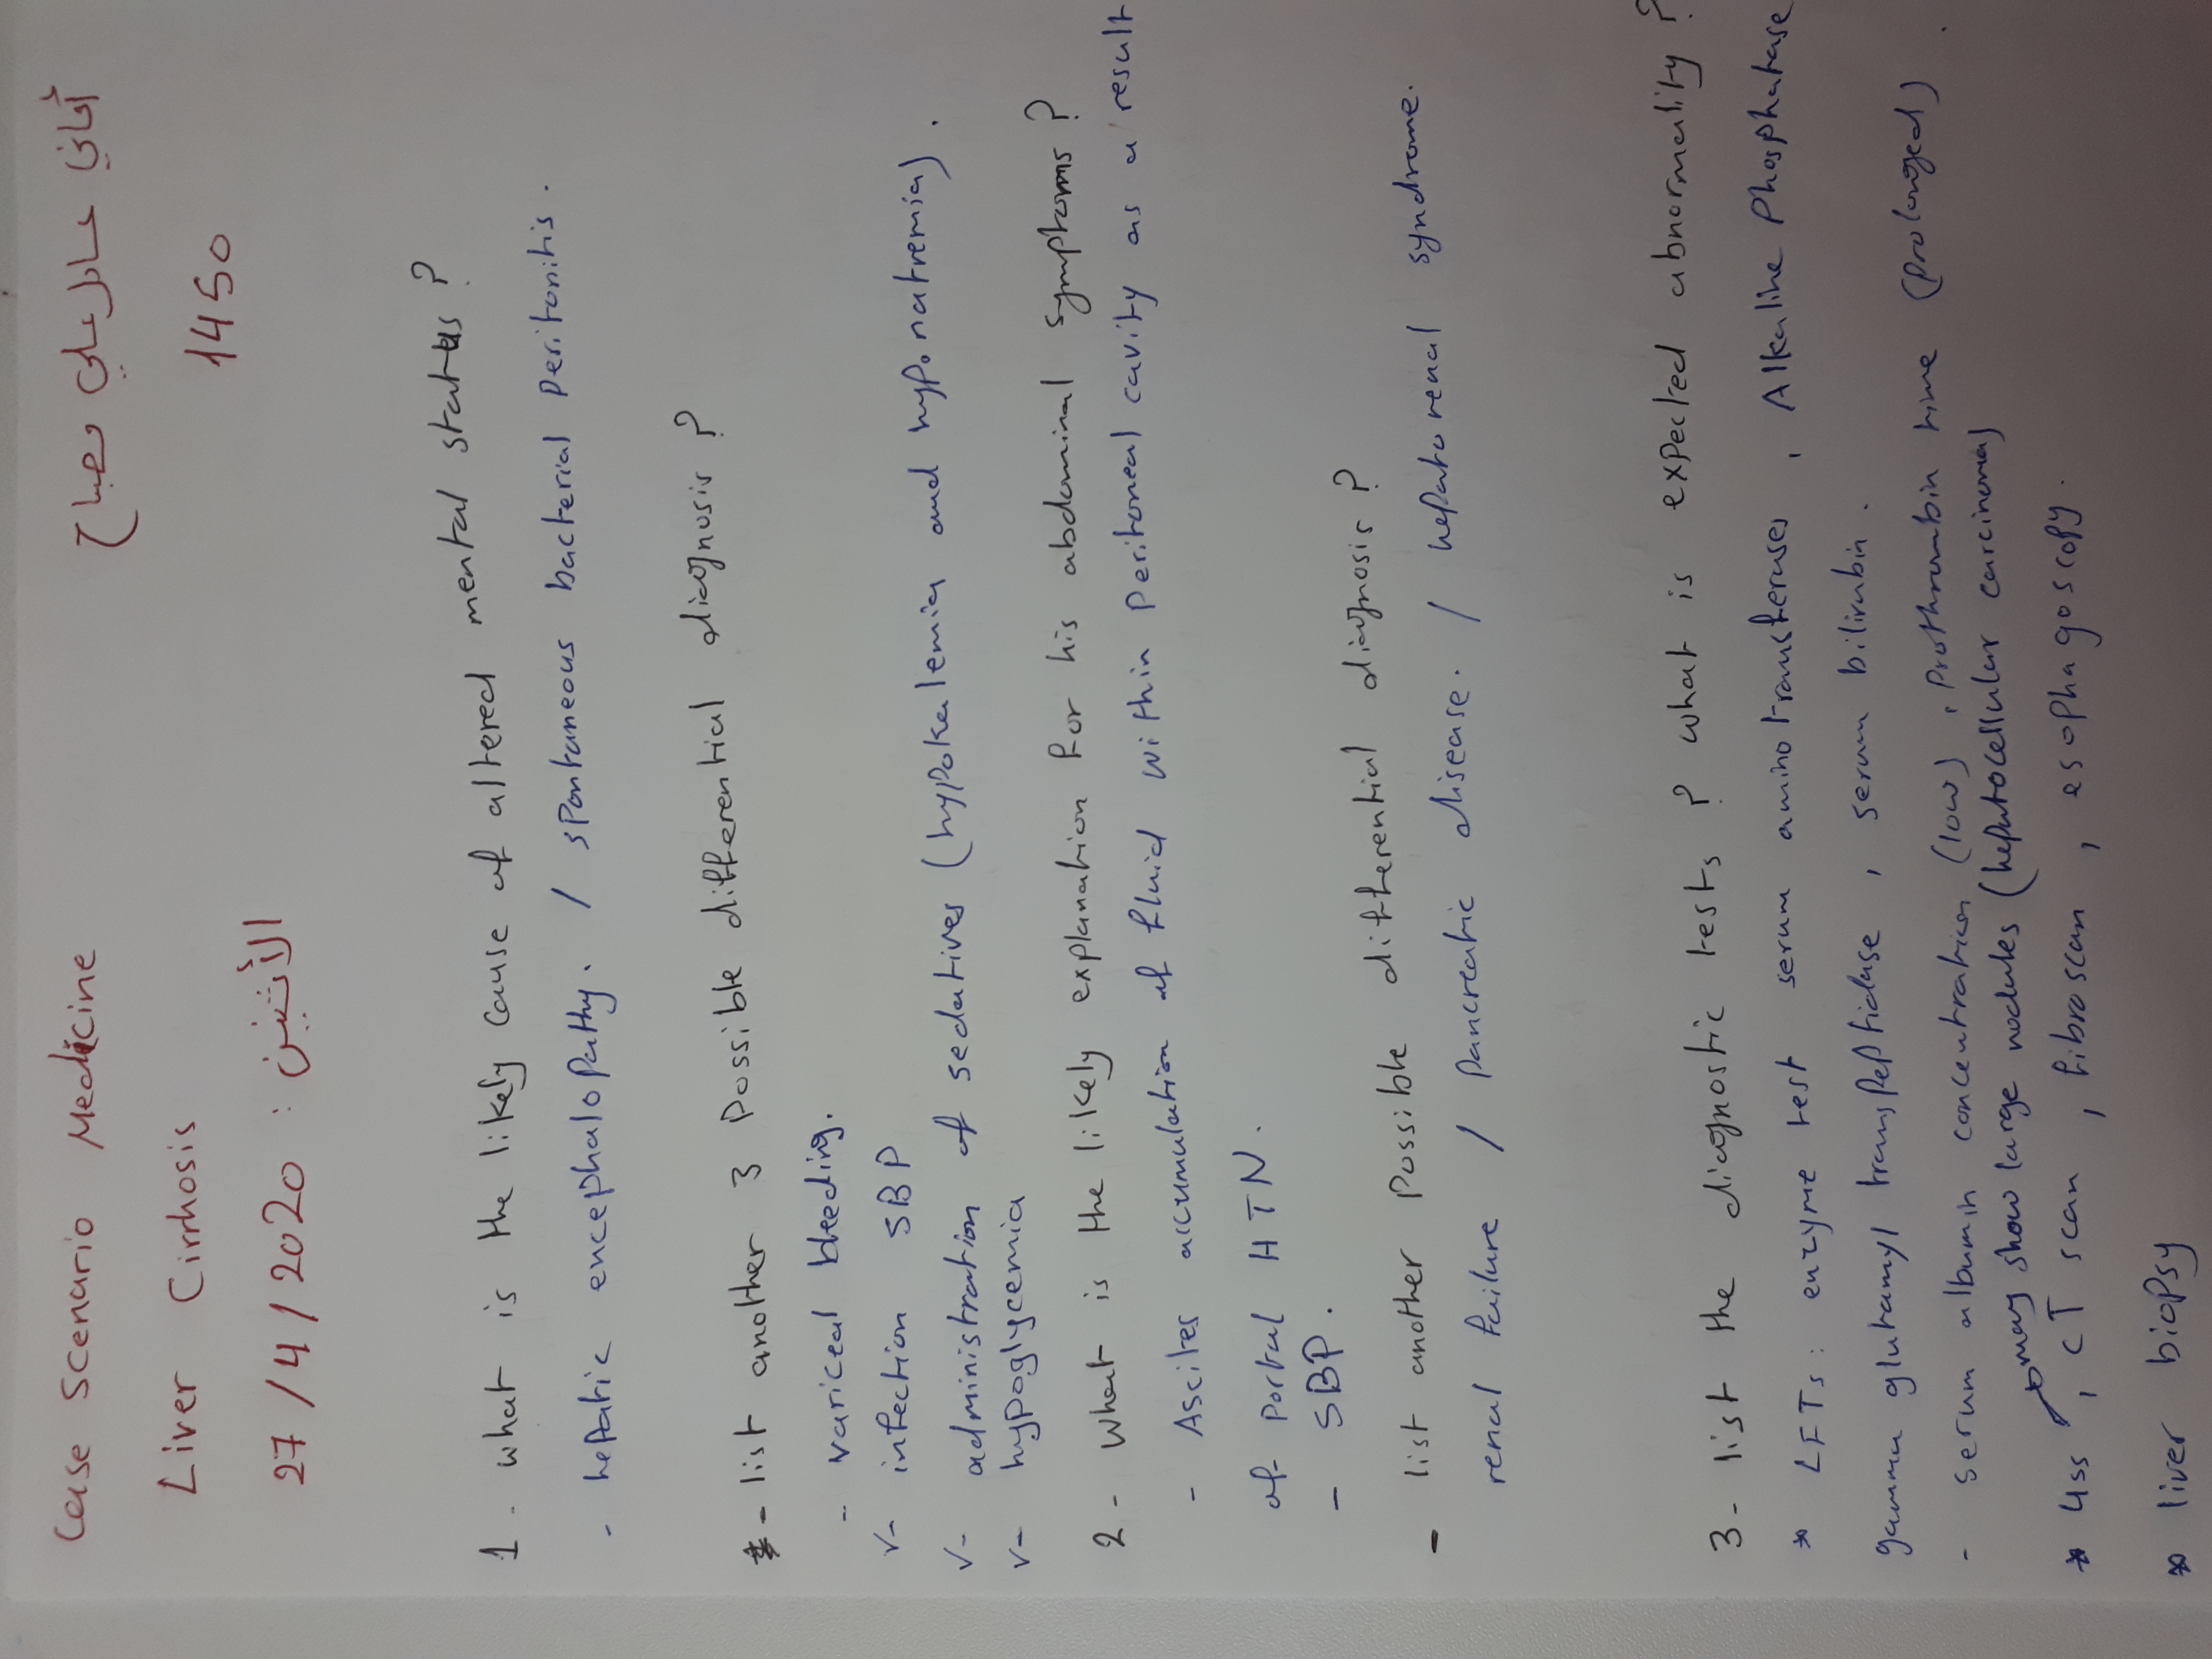 Case Scenario Medicine
أماني عادل علي مصباح
Liver Cirrhosis
1450
27/4/2020 : الأثنين
1. what is the likely cause of altered mental status?
- hepatic encephalopathy. / spontaneous bacterial peritonitis.
* - list another 3 possible differential diagnosis?
- variceal bleeding.
✓- infection SBP
✓- administration of sedatives (hypokalemia and hyponatremia).
✓- hypoglycemia
2- what is the likely explanation for his abdominal symphtoms?
- Ascites accumulation of fluid within peritoneal cavity as a result
of portal HTN.
- SBP.
- list another possible differential diagnosis?
renal failure / pancreatic disease. / hepatorenal syndrome.
3- list the diagnostic tests? what is expected abnormality?
* LFTs: enzyme test serum aminotransferases, Alkaline phosphatase
gamma glutamyl transpeptidase, serum bilirubin.
- serum albumin concentration (low), prothrombin time (prolonged).
may show large nodules (hepatocellular carcinoma)
* USS, CT scan, fibroscan, esophagoscopy.
* liver biopsy